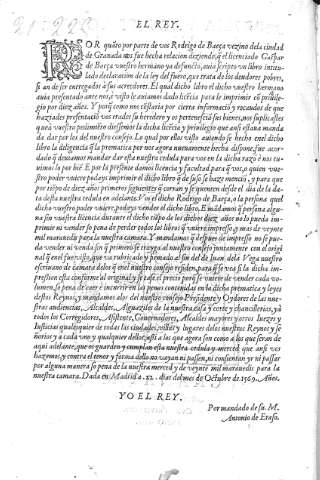 EL REY.
POR quãto por parte de vos Rodrigo de Baeça vezino dela ciudad
de Granada nos fue hecha relacion deziendo, q̃ el licenciado Gaspar
de Baeça vuestro hermano ya defuncto, auia scripto vn libro intitu-
lado declaracion de la ley del fuero, que trata de los deudores pobres,
si an de ser entregados a sus acreedores. El qual dicho libro el dicho vuestro hermano
auia presentado ante nos, y visto le auiamos dado licẽcia para le imprimir cõ priuile-
gio por diez años. Y porq̃ como nos cõstaria por cierta informaciõ y recaudos de que
haziades presentaciõ vos erades su heredero y os pertenesciã sus bienes, nos suplicastes
que a vuestro pedimiẽto diessemos la dicha licẽcia y priuilegio que ansi estaua manda-
da dar por los del nuestro consejo. Lo qual por ellos visto auiendo se hecho enel dicho
libro la diligencia q̃ la prematica por nos agora nueuamente hecha dispone, fue acor-
dado q̃ deuiamos mandar dar esta nuestra cedula para vos en la dicha razõ e nos tu-
uimos lo por biẽ. E por la presente damos licencia y facultad para q̃ vos, o quien vues-
tro poder vuiere podays imprimir el dicho libro que de suso se haze mencíõ, y para que
por tiẽpo de diez años primeros siguientes q̃ corran y se quenten desde el dia de la da-
ta desta nuestra cedula en adelante. Vos el dicho Rodrigo de Baeça, o la persona quel
dicho vuestro poder vuiere, podays vender el dicho libro. E mãdamos q̃ persona algu-
na sin vuestra licencia durante el dicho tiẽpo de los dichos diez años no lo pueda im-
primir ni vender so pena de perder todos los libros q̃ vuiere impresso, y mas de veynte
mil marauedis para la nuestra camara. Y mandamos q̃ despues de impresso no se pue-
da vender ni venda sin q̃ primero se trayga al nuestro consejo juntamente con el origi-
nal q̃ en el fue visto, que va rubricado y firmado al fin del de Iuan dela Vega nuestro
escriuano de camara delos q̃ en el nuestro consejo residen, para q̃ se vea si la dicha im-
pression esta conforme al original y se tasse el precio porq̃ se vuiere de vender cada vo-
lumen, so pena de caer e incurrir en las penas contenidas en la dicha prematica y leyes
destos Reynos, y mandamos alos del nuestro consejo Presidente y Oydores de las nues-
tras audiencias, Alcaldes, Alguaziles de la nuestra casa y corte y chancillerias, y a
todos los Corregidores, Assistente, Gouernadores, Alcaldes mayores y otros Iuezes y
Iusticias qualesquier de todas las ciudades, villas y lugares delos nuestros Reynos y se-
ñorios y a cada vno y qualquier dellos, assi a los que agora son como a los que seran de
aqui adelante, que os guarden y cumplan esta nuestra cedula y merced que ansi vos
hazemos, y contra el tenor y forma dello no vayan ni passen, ni consientan yr ni passar
por alguna manera so pena de la nuestra merced y de veynte mil marauedis para la
nuestra camara. Dada en Madrid a .22. dias del mes de Octubre de 1569. Años.
YO EL REY.
Por mandado de su. M.
Antonio de Eraso.